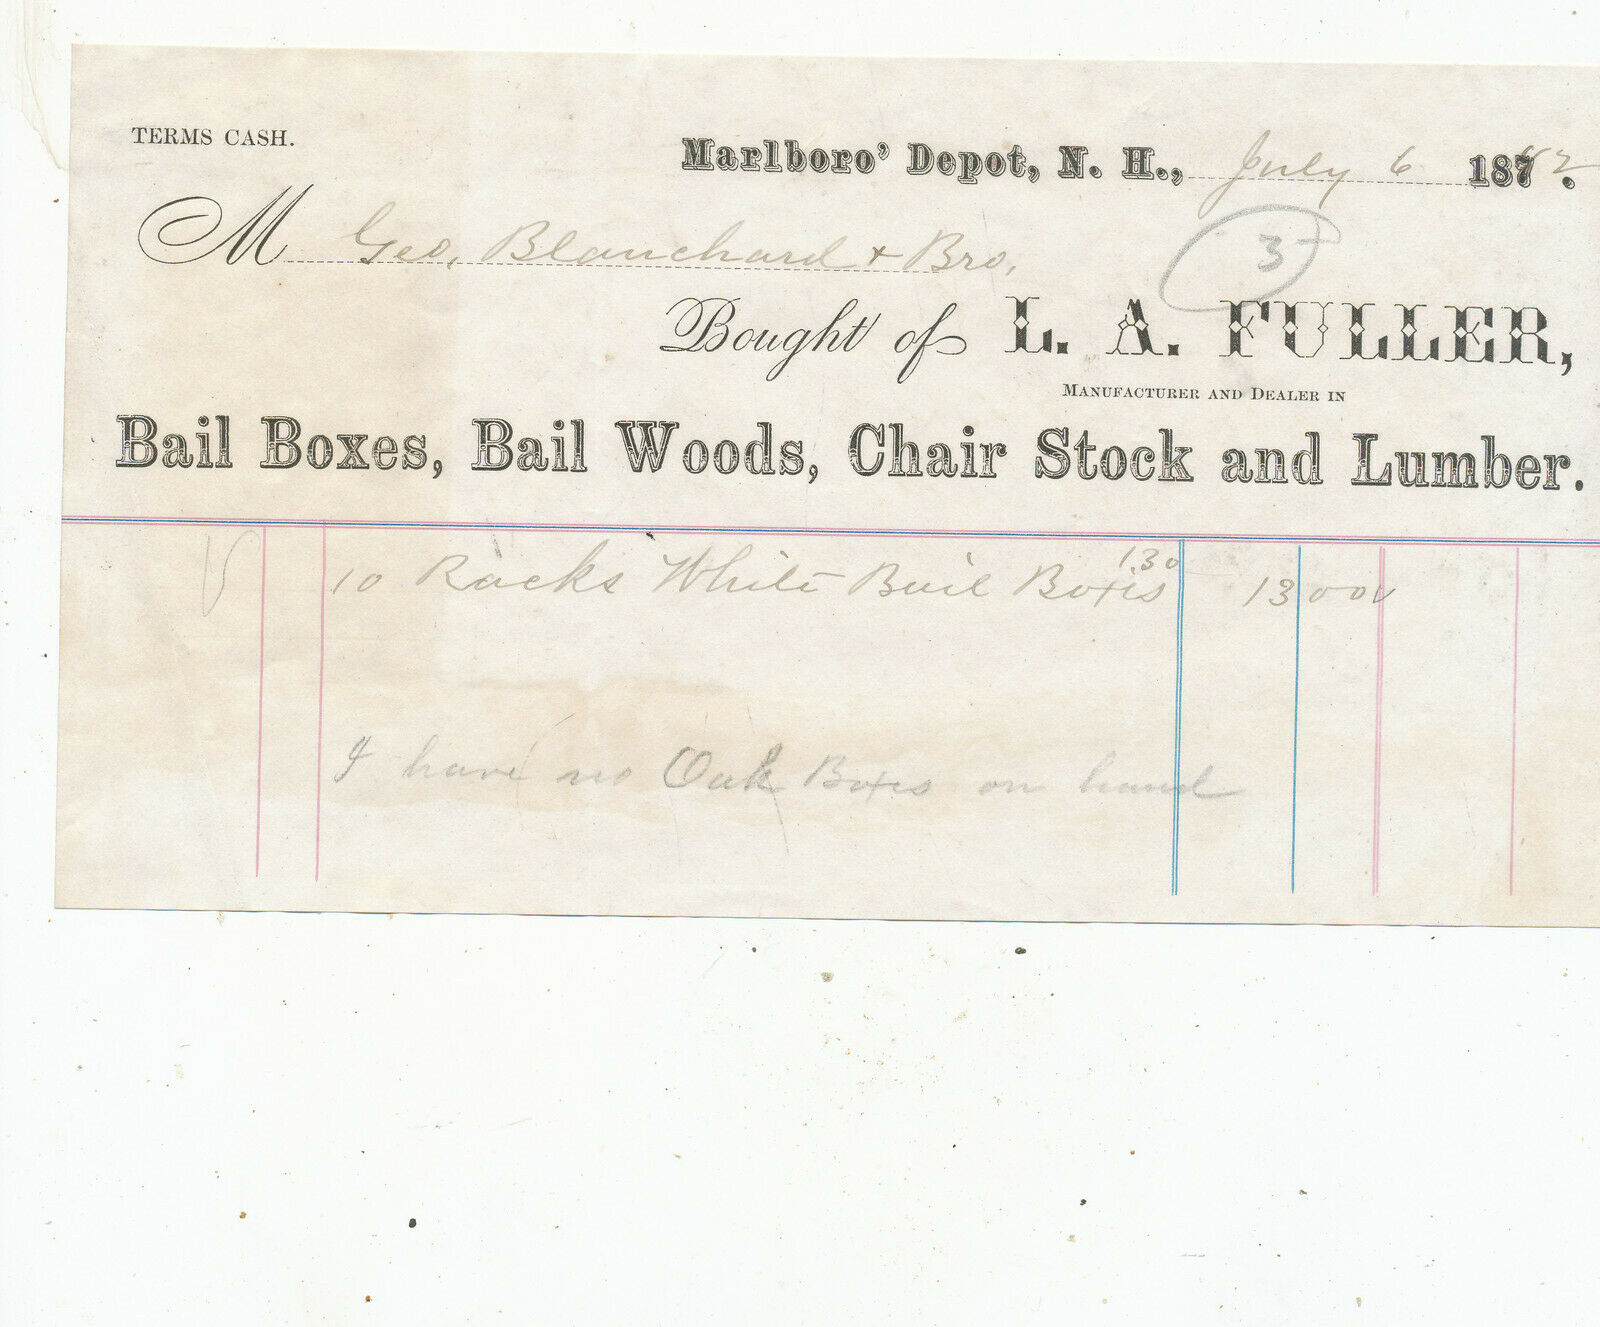 TERMS CASH.
Marlboro' Depot, N. H., July 6 1882.
M Geo. Blanchard & Bro.
3
Bought of L. A. FULLER,
MANUFACTURER AND DEALER IN
Bail Boxes, Bail Woods, Chair Stock and Lumber.
10 Racks White Bail Boxes 1.30 13 00
I have no Oak Boxes on hand